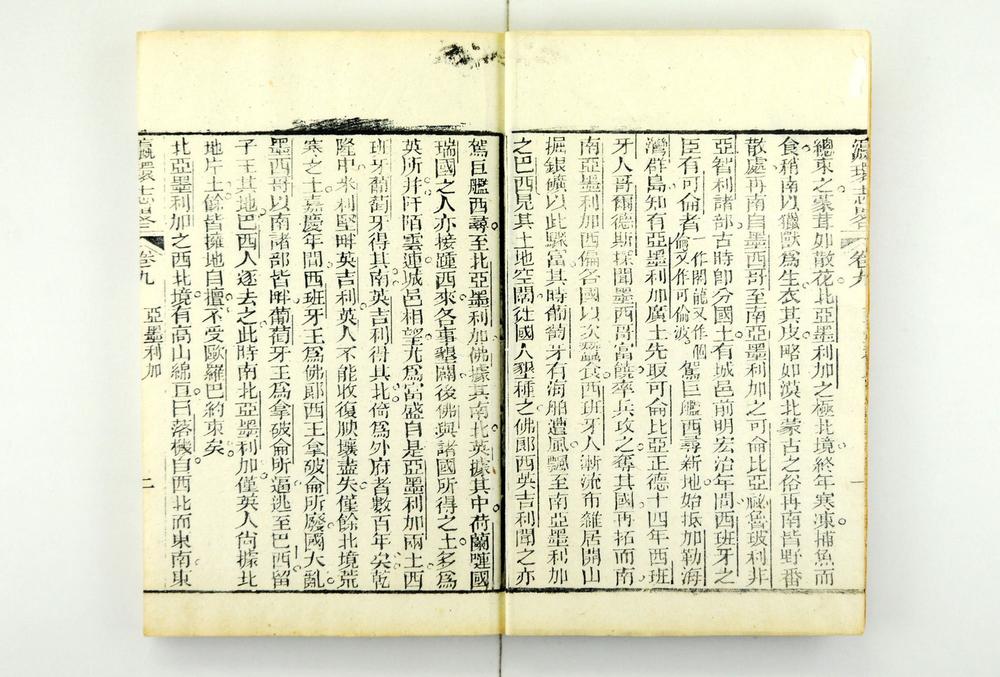 瀛環志略 卷九 一
總束之蒙茸如散花北亞墨利加之極北境終年寒凍捕魚而
食稍南以獵獸為生衣其皮略如漠北蒙古之俗再南皆野番
散處再南自墨西哥至南亞墨利加之可侖比亞祕魯玻利非
亞智利諸部古時即分國土有城邑前明宏治年間西班牙之
臣有可倫者一作閣龍又作個倫又作可倫波駕巨艦西尋新地始抵加勒海
灣群島知有亞墨利加廣土先取可侖比亞正德十四年西班
牙人哥爾德斯探聞墨西哥富饒率兵攻之奪其國再拓而南
南亞墨利加西偏各國以次蠶食西班牙人漸流布雜居開山
掘銀礦以此驟富其時葡萄牙有海舶遭風飄至南亞墨利加
之巴西見其土地空闊徙國人墾種之佛郎西英吉利聞之亦
駕巨艦西尋至北亞墨利加佛據其南北英據其中荷蘭嗹國
瑞國之人亦接踵西來各事墾闢後佛與諸國所得之土多為
英所并阡陌雲連城邑相望尤為富盛自是亞墨利加兩土西
班牙葡萄牙得其南英吉利得其北倚為外府者數百年矣乾
隆中米利堅畔英吉利英人不能收復腴壤盡失僅餘北境荒
寒之土嘉慶年間西班牙王為佛郎西王拿破侖所廢國大亂
墨西哥以南諸部皆畔葡萄牙王為拿破侖所逼逃至巴西留
子王其地巴西人逐去之此時南北亞墨利加僅英人尚據北
地片土餘皆擁地自擅不受歐羅巴約束矣
北亞墨利加之西北境有高山綿亘曰落機自西北而東南東
瀛環志略 卷九 亞墨利加 二